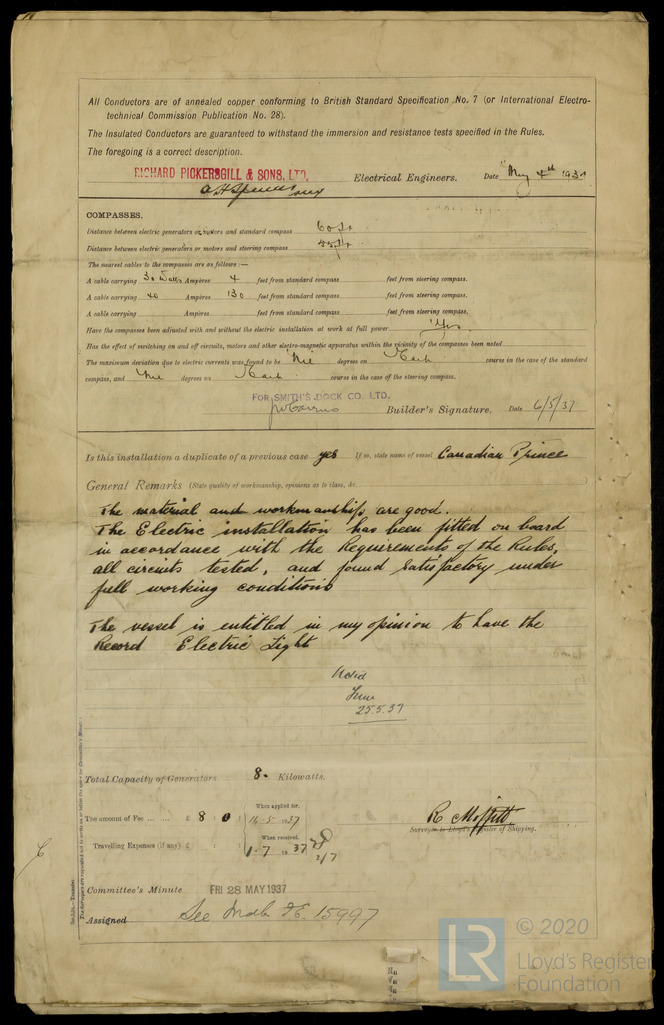 All Conductors are of annealed copper conforming to British Standard Specification No. 7 (or International Electro-
technical Commission Publication No. 28).
The Insulated Conductors are guaranteed to withstand the immersion and resistance tests specified in the Rules.
The foregoing is a correct description.
RICHARD PICKERSGILL & SONS, LTD.
Electrical Engineers. Date May 4th 193
COMPASSES.
Distance between electric generators or motors and standard compass 60
Distance between electric generators or motors and steering compass 55
The nearest cables to the compasses are as follows:—
A cable carrying 30 Watts Ampères 4 feet from standard compass feet from steering compass.
A cable carrying 40 Ampères 130 feet from standard compass feet from steering compass.
A cable carrying Ampères feet from standard compass feet from steering compass.
Have the compasses been adjusted with and without the electric installation at work at full power Yes
Has the effect of switching on and off circuits, motors and other electro-magnetic apparatus within the vicinity of the compasses been noted
The maximum deviation due to electric currents was found to be Nil degrees on Each course in the case of the standard
compass, and Nil degrees on Each course in the case of the steering compass.
FOR SMITH'S DOCK CO. LTD.
Builder's Signature. Date 6/5/37
Is this installation a duplicate of a previous case yes If so, state name of vessel Canadian Prince
General Remarks (State quality of workmanship, opinions as to class, &c.
The material and workmanship are good.
The Electric installation has been fitted on board
in accordance with the Requirements of the Rules,
all circuits tested, and found satisfactory under
full working conditions
The vessel is entitled in my opinion to have the
Record Electric Light
Noted
25.5.37
Total Capacity of Generators 8. Kilowatts.
The amount of Fee ... ... £ 8 : 0 :
When applied for,
14.5.1937
Travelling Expenses (if any) £ : :
When received,
1.7.1937
2/7
R Moffitt
Surveyor to Lloyd's Register of Shipping.
Committee's Minute FRI 28 MAY 1937
Assigned See Mdb. F.E. 15997
The Surveyors are requested not to write on or below the space for Committee's Minute.
LR
© 2020
Lloyd's Register
Foundation